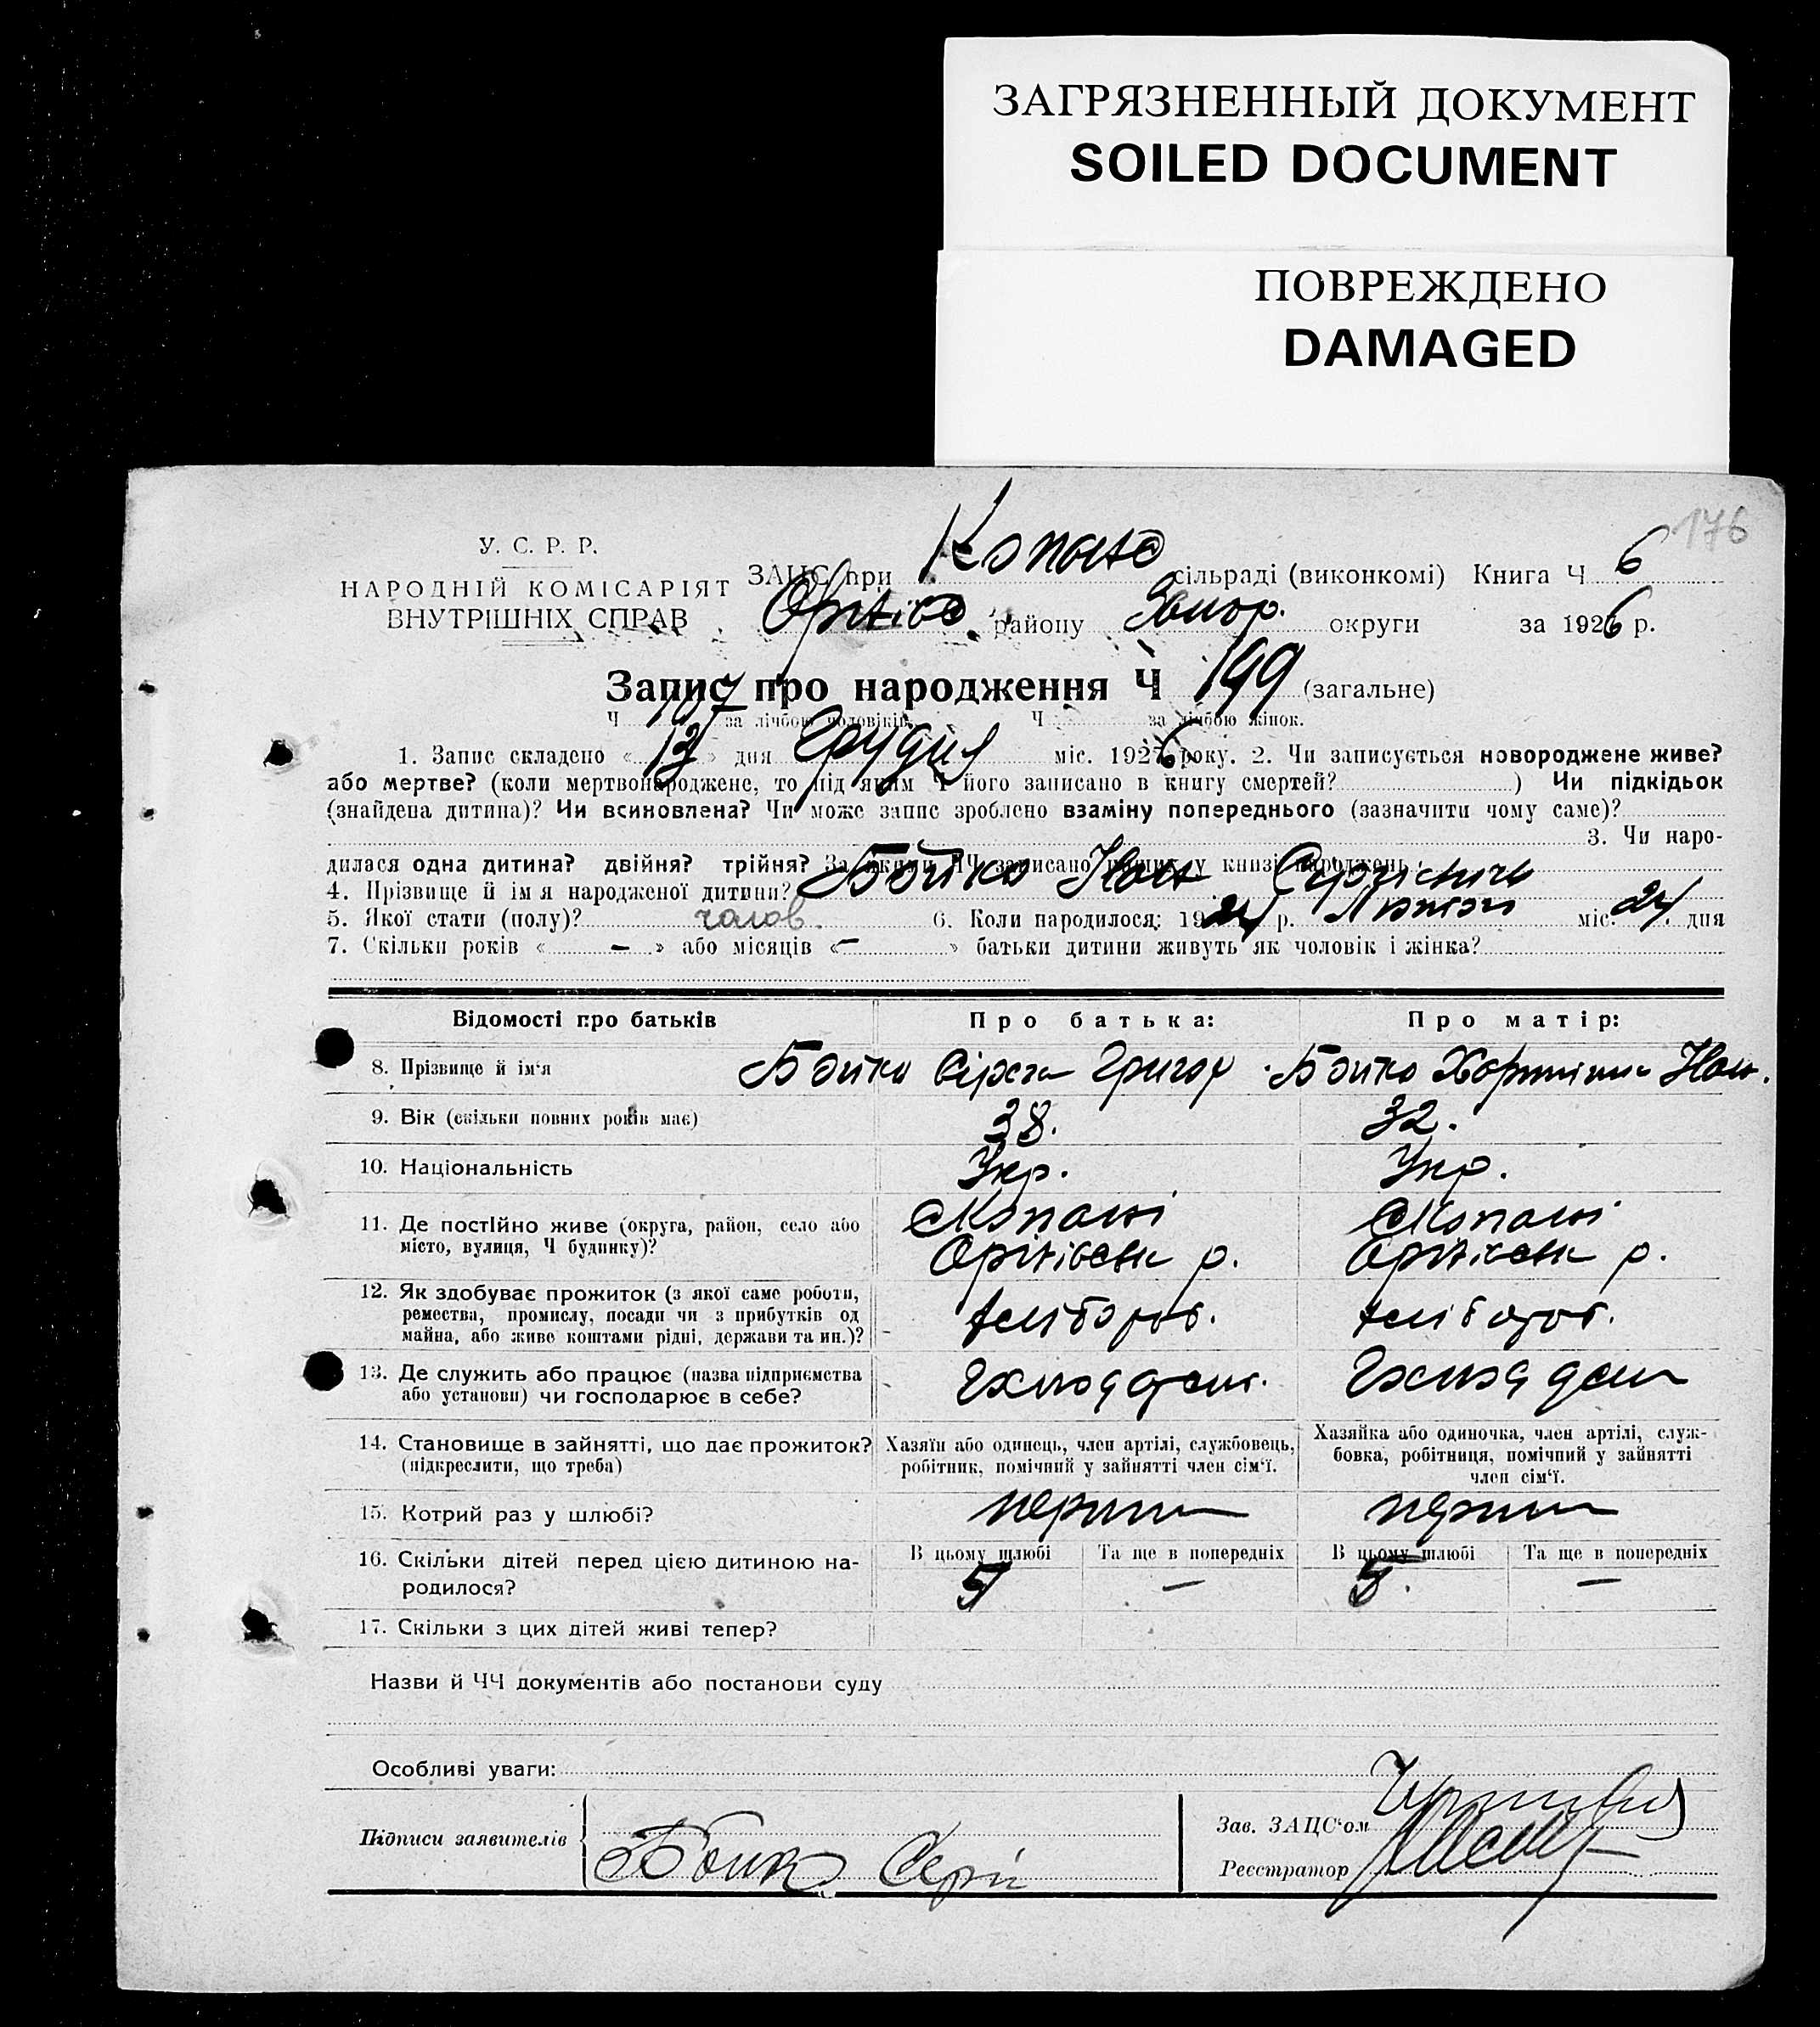 ЗАГРЯЗНЕННЫЙ ДОКУМЕНТ
SOILED DOCUMENT
ПОВРЕЖДЕНО
DAMAGED
176
У. С. Р. Р.
НАРОДНІЙ КОМІСАРІЯТ
ВНУТРІШНІХ СПРАВ
ЗАЦС при сільраді (виконкомі) Книга Ч 6
району Запор. округи за 1926 р.
Запис про народження Ч 199 (загальне)
Ч 107 за лічбою чоловіків. Ч за лічбою жінок.
1. Запис складено « 13 » дня Грудня міс. 1926 року. 2. Чи записується новороджене живе?
або мертве? (коли мертвонароджене, то під яким Ч його записано в книгу смертей? ) Чи підкідьок
(знайдена дитина)? Чи всиновлена? Чи може запис зроблено взаміну попереднього (зазначити чому саме)?
3. Чи наро-
дилася одна дитина? двійня? трійня? За якими ЧЧ записано інших у книзі народжень
4. Прізвище й ім'я народженої дитини? Бойко Иван
5. Якої стати (полу)? чолов. 6. Коли народилося: 1924 р. Лютого міс. 24 дня
7. Скільки років « — » або місяців « — » батьки дитини живуть як чоловік і жінка?
Відомості про батьків Про батька: Про матір:
8. Прізвище й ім'я Бойко Григор Бойко Иван.
9. Вік (скільки повних років має) 38. 32.
10. Національність Укр. Укр.
11. Де постійно живе (округа, район, село або Копані Копані
місто, вулиця, Ч будинку)? р. р.
12. Як здобуває прожиток (з якої саме роботи,
ремества, промислу, посади чи з прибутків од хлібороб. хлібороб.
майна, або живе коштами рідні, держави та ин.)?
13. Де служить або працює (назва підприємства
або установи) чи господарює в себе?
14. Становище в зайнятті, що дає прожиток? Хазяїн або одинець, член артілі, службовець, Хазяйка або одиночка, член артілі, служ-
(підкреслити, що треба) робітник, помічний у зайнятті член сім'ї. бовка, робітниця, помічний у зайнятті
член сім'ї.
15. Котрий раз у шлюбі? перший перший
16. Скільки дітей перед цією дитиною на- В цьому шлюбі Та ще в попередніх В цьому шлюбі Та ще в попередніх
родилося? 5 — 5. —
17. Скільки з цих дітей живі тепер?
Назви й ЧЧ документів або постанови суду
Особливі уваги:
Підписи заявителів Бойко Зав. ЗАЦС'ом
Реєстратор